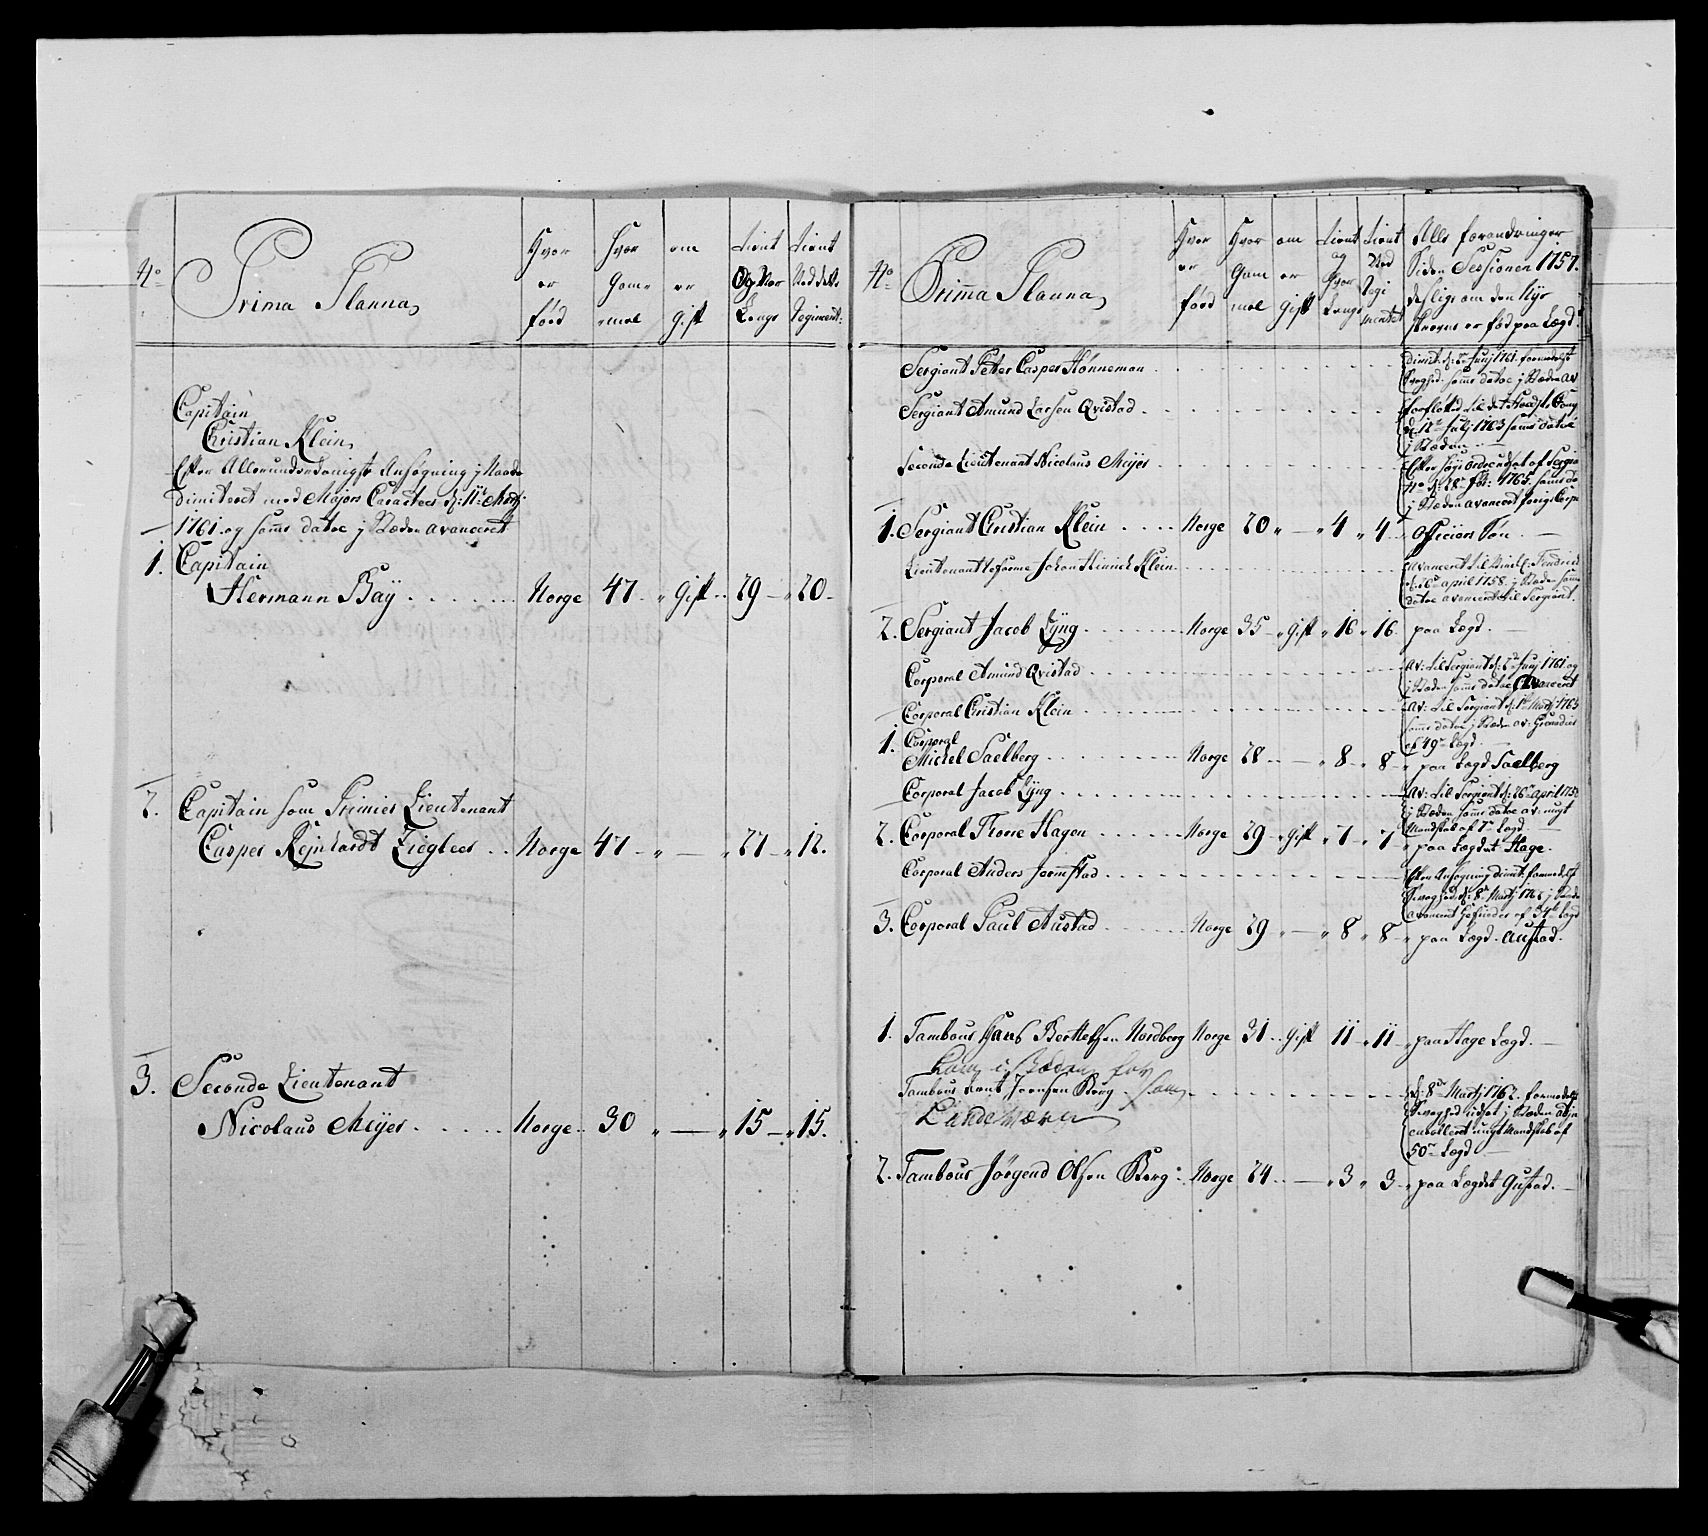 No
Prima Planna
Hvor er fød
Hvor Gammel
om er Gift
Tient Og Hvor Lenge
Tient Ved dette Regiment:
Capitain
Christian Klein,
Efter Allerunderdanigste Ansøgning j Naade
Dimiteret med Majors Caracteer d: 11te Martj
1761. og samme datoe j Stæden avanceret
1. Capitain
Hermann Baÿ . . . . . . Norge 47 " Gift . 29 " 20
2. Capitain som Primier Lieutenant
Casper Rejnhardt Ziegleer . . Norge 47 " — " 27 " 12.
3. Seconde Lieutenant
Nicolaus Meÿer . . . . . Norge . 30 " — " 15 " 15.
No
Prima Planna,
Hvor er fød
Hvor Gammel
om er Gift
Tient og Hvor Lenge
Tient Ved Regimentet
Alle forandringer
Siden Sessionen 1757.
desligeom den Nÿe
er fød paa Lægd
Sergiant Peter Casper Hønneman . . . . .
Dimit: d: Junj 1761. formedelst
Svaghed. samme datoe j Stæden av
Sergiant Amund Larsen Qvistad . . . . .
forfløted til det Comp
d: 12te Julj 1763 samme datoe
j Stæden
Seconde Lieutenant Nicolaus Meÿer . . . . .
Efter høÿe ordre udsat af Sergia
j Stæden avanceret forige Corpo
1. Sergiant Christian Klein . . . . Norge 20 " — " 4 " 4 " Officiers Søn. —
Lieutenant Reforme Johan Hinrich Klein . . . . .
Avanceret til Virkel: Fendrich
d: 26 april 1758. j Stæden samme
datoe avanceret til Sergiant.
2. Sergiant Jacob Lÿng . . . . . Norge 35 " Gift " 16 " 16. paa Lægd. —
Corporal Amund Qvistad . . . . .
Av: til Sergiant d: 2 Junj 1761. og
j Stæden samme datoe Avanceret
Corporal Christian Klein . . . . .
Av: til Sergiant d: 1te Martj 1763
samme datoe j Stæden av: Grenadeer
af 49de Lægd.
1. Corporal
Mickel Saelberg . . . . . Norge 28 . — " 8 " 8 " paa Lægd Saelberg
Corporal Jacob Lÿng . . . . .
Av: til Sergiant d: 26 april 1758
j Stæden samme datoe av: ungt
Mandskab af 7de Lægd.
2. Corporal Thore Hagen . . . . . Norge 29 " Gift " 7 " 7 " paa Lægdet Hage.
Corporal Anders . . . . .
Efter Ansøgning dimit: formedelst
Svaghed d: 8de Martj j Stæden
avanceret Gefreider af 34te Lægd
3. Corporal Paul Austad . . . . . Norge 29 " — " 8 " 8 " paa Lægd. Austad.
1. Tambour Hans Berthelsen Nordberg Norge 31 . Gift 11 " 11 " paa Hage Lægd. —
Kom i Stæden for
Tambour Jørnsen Berg . som . . . . .
Landeværn
d: 8de Martj 1762. formedelst
Svaghed udsat j Stæden
enrolleret ungt Mandskab af
50de Lægd —
2. Tambour Jørgend Olsen Berg: . Norge 24 . — " 3 " 3 " paa Lægdet Gustad. —